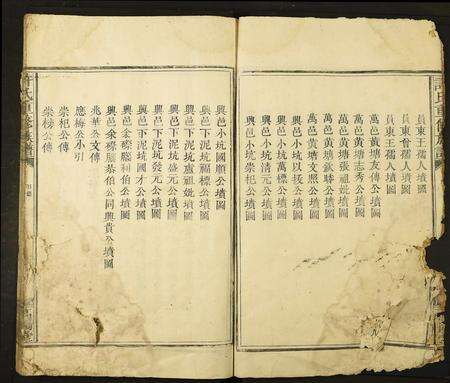 員東王孺人墳圖
員東曾孺人墳圖
萬邑黃塘友傳公墳圖
萬邑黃塘志秀公墳圖
萬邑黃塘張祖妣墳圖
萬邑黃塘欽時公墳圖
萬邑黃塘文熙公墳圖
興邑小坑以珍公墳圖
興邑小坑萬標公墳圖
興邑小坑清元公墳圖
興邑小坑崇杞公墳圖
興邑小坑國順公墳圖
興邑下泥坑福標公墳圖
興邑下泥坑盧祖妣墳圖
興邑下泥坑盛元公墳圖
興邑下泥坑發元公墳圖
興邑余礤腦利伯公墳圖
興邑下泥坑國才公墳圖
興邑余礤腦恭伯公同興貴公墳圖
兆華公文傳
應梅公小引
崇杞公傳
崇榜公傳